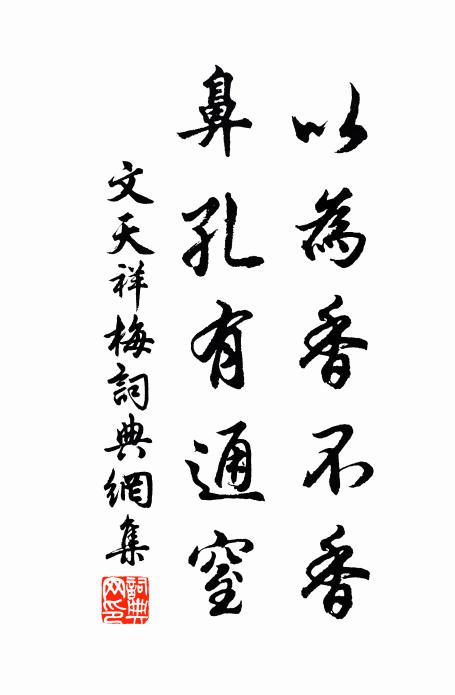 以為香不香
鼻孔有通窒
文天祥梅詞典網集
詞典網印